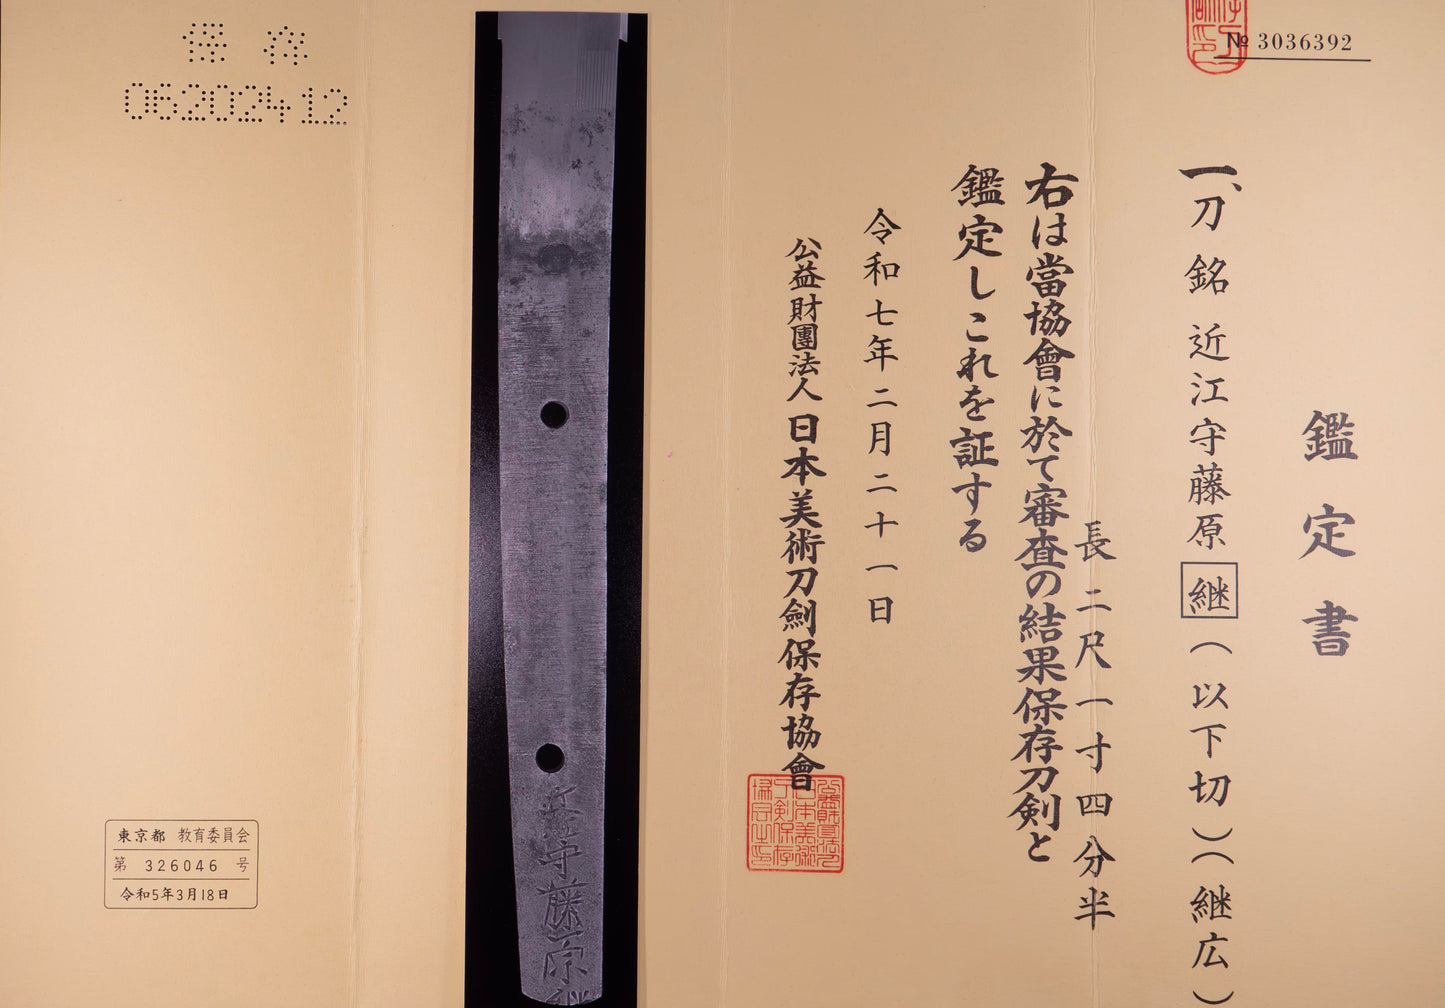 № 3036392
鑑定書
一、刀 銘 近江守藤原継(以下切)(継広)
長 二尺一寸四分半
右は當協會に於て審査の結果保存刀剣と
鑑定しこれを証する
令和七年二月二十一日
公益財團法人 日本美術刀劍保存協會
守藤原
保存
06202412
東京都 教育委員会
第 326046 号
令和5年3月18日